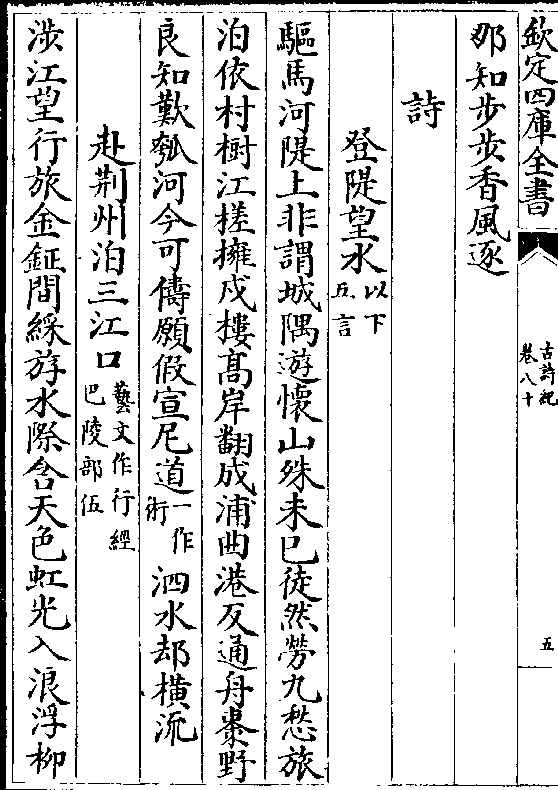 欽定四庫全書
古詩紀
卷八十
五
那知步步香風逐
詩
登隄望水以下
五言
驅馬河隄上非謂城隅遊懷山殊未已徒然勞九愁旅
泊依村樹江槎擁戍樓髙岸翻成浦曲港反通舟棗野
良知歎瓠河今可儔願假宣尼道一作
術泗水却橫流
赴荆州泊三江口藝文作行經
巴陵部伍
渉江望行旅金鉦間綵斿水際含天色虹光入浪浮柳